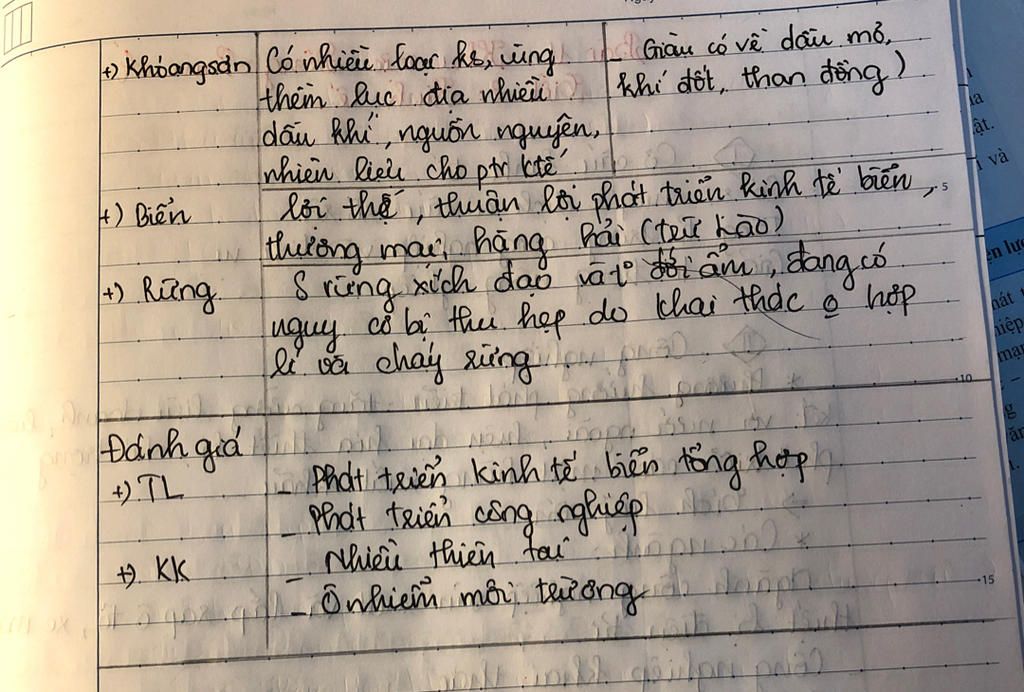 +) Khoángsản Có nhiều loại ks, vùng - Giàu có về dầu mỏ,
thềm lục địa nhiều khí đốt, than đồng)
dầu khí, nguồn nguyên,
nhiên liệu cho ptr ktế
+) Biển lợi thế, thuận lợi phát triển kinh tế biển,
thương mại, hàng hải (trừ Lào)
+) Rừng S rừng xích đạo và to đới ẩm, đang có
nguy cơ bị thu hẹp do khai thác o hợp
lí và cháy rừng
Đánh giá
+) TL - Phát triển kinh tế biển tổng hợp
- Phát triển công nghiệp
+) KK - Nhiều thiên tai
- Ô nhiễm môi trường